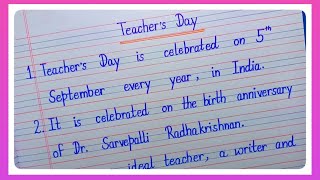 Teacher's Day
1. Teacher's Day is celebrated on 5th
September every year, in India.
2. It is celebrated on the birth anniversary
of Dr. Sarvepalli Radhakrishnan.
ideal teacher, a writer and